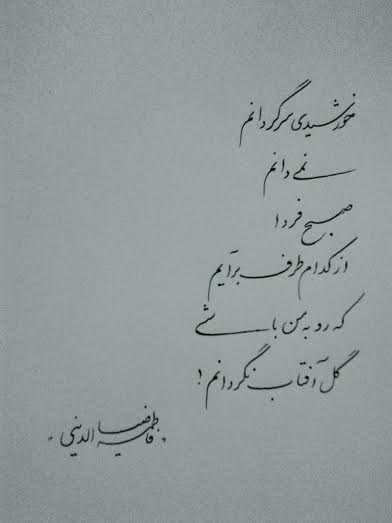 خورشیدی سرگردانم
نمے دانم
صبح فردا
از کدام طرف برآیم
که رو به من باشے
گل آفتاب نگردانم !
"فاطمه ضیاالدینی"